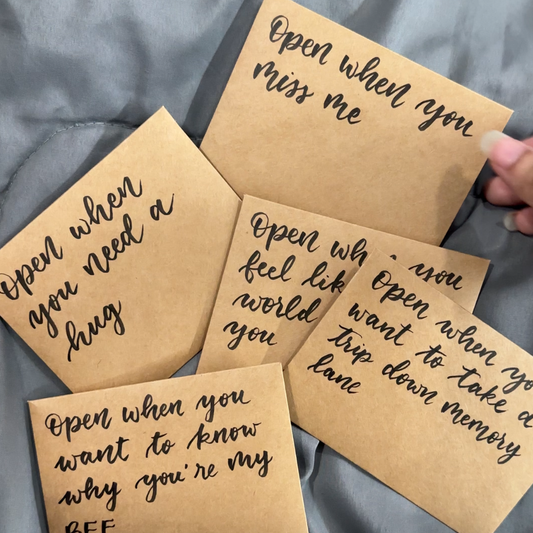 Open when you
miss me
Open when
you need a
hug
Open when you
feel like
world
you
Open when you
want to take a
trip down memory
lane
Open when you
want to know
why you're my
BFF